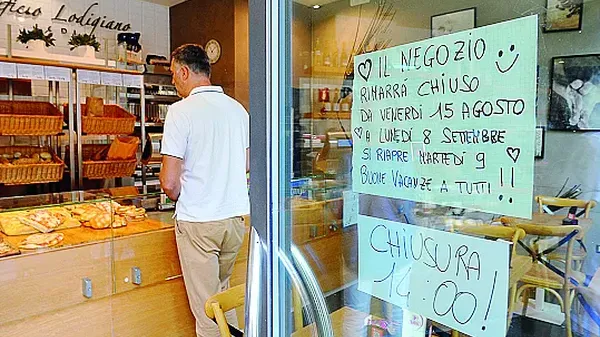 ficio Lodigiano
IL NEGOZIO
RIMARRÀ CHIUSO
DA VENERDÌ 15 AGOSTO
A LUNEDÌ 8 SETTEMBRE
SI RIAPRE MARTEDÌ 9
BUONE VACANZE A TUTTI!!
CHIUSURA
14:00!